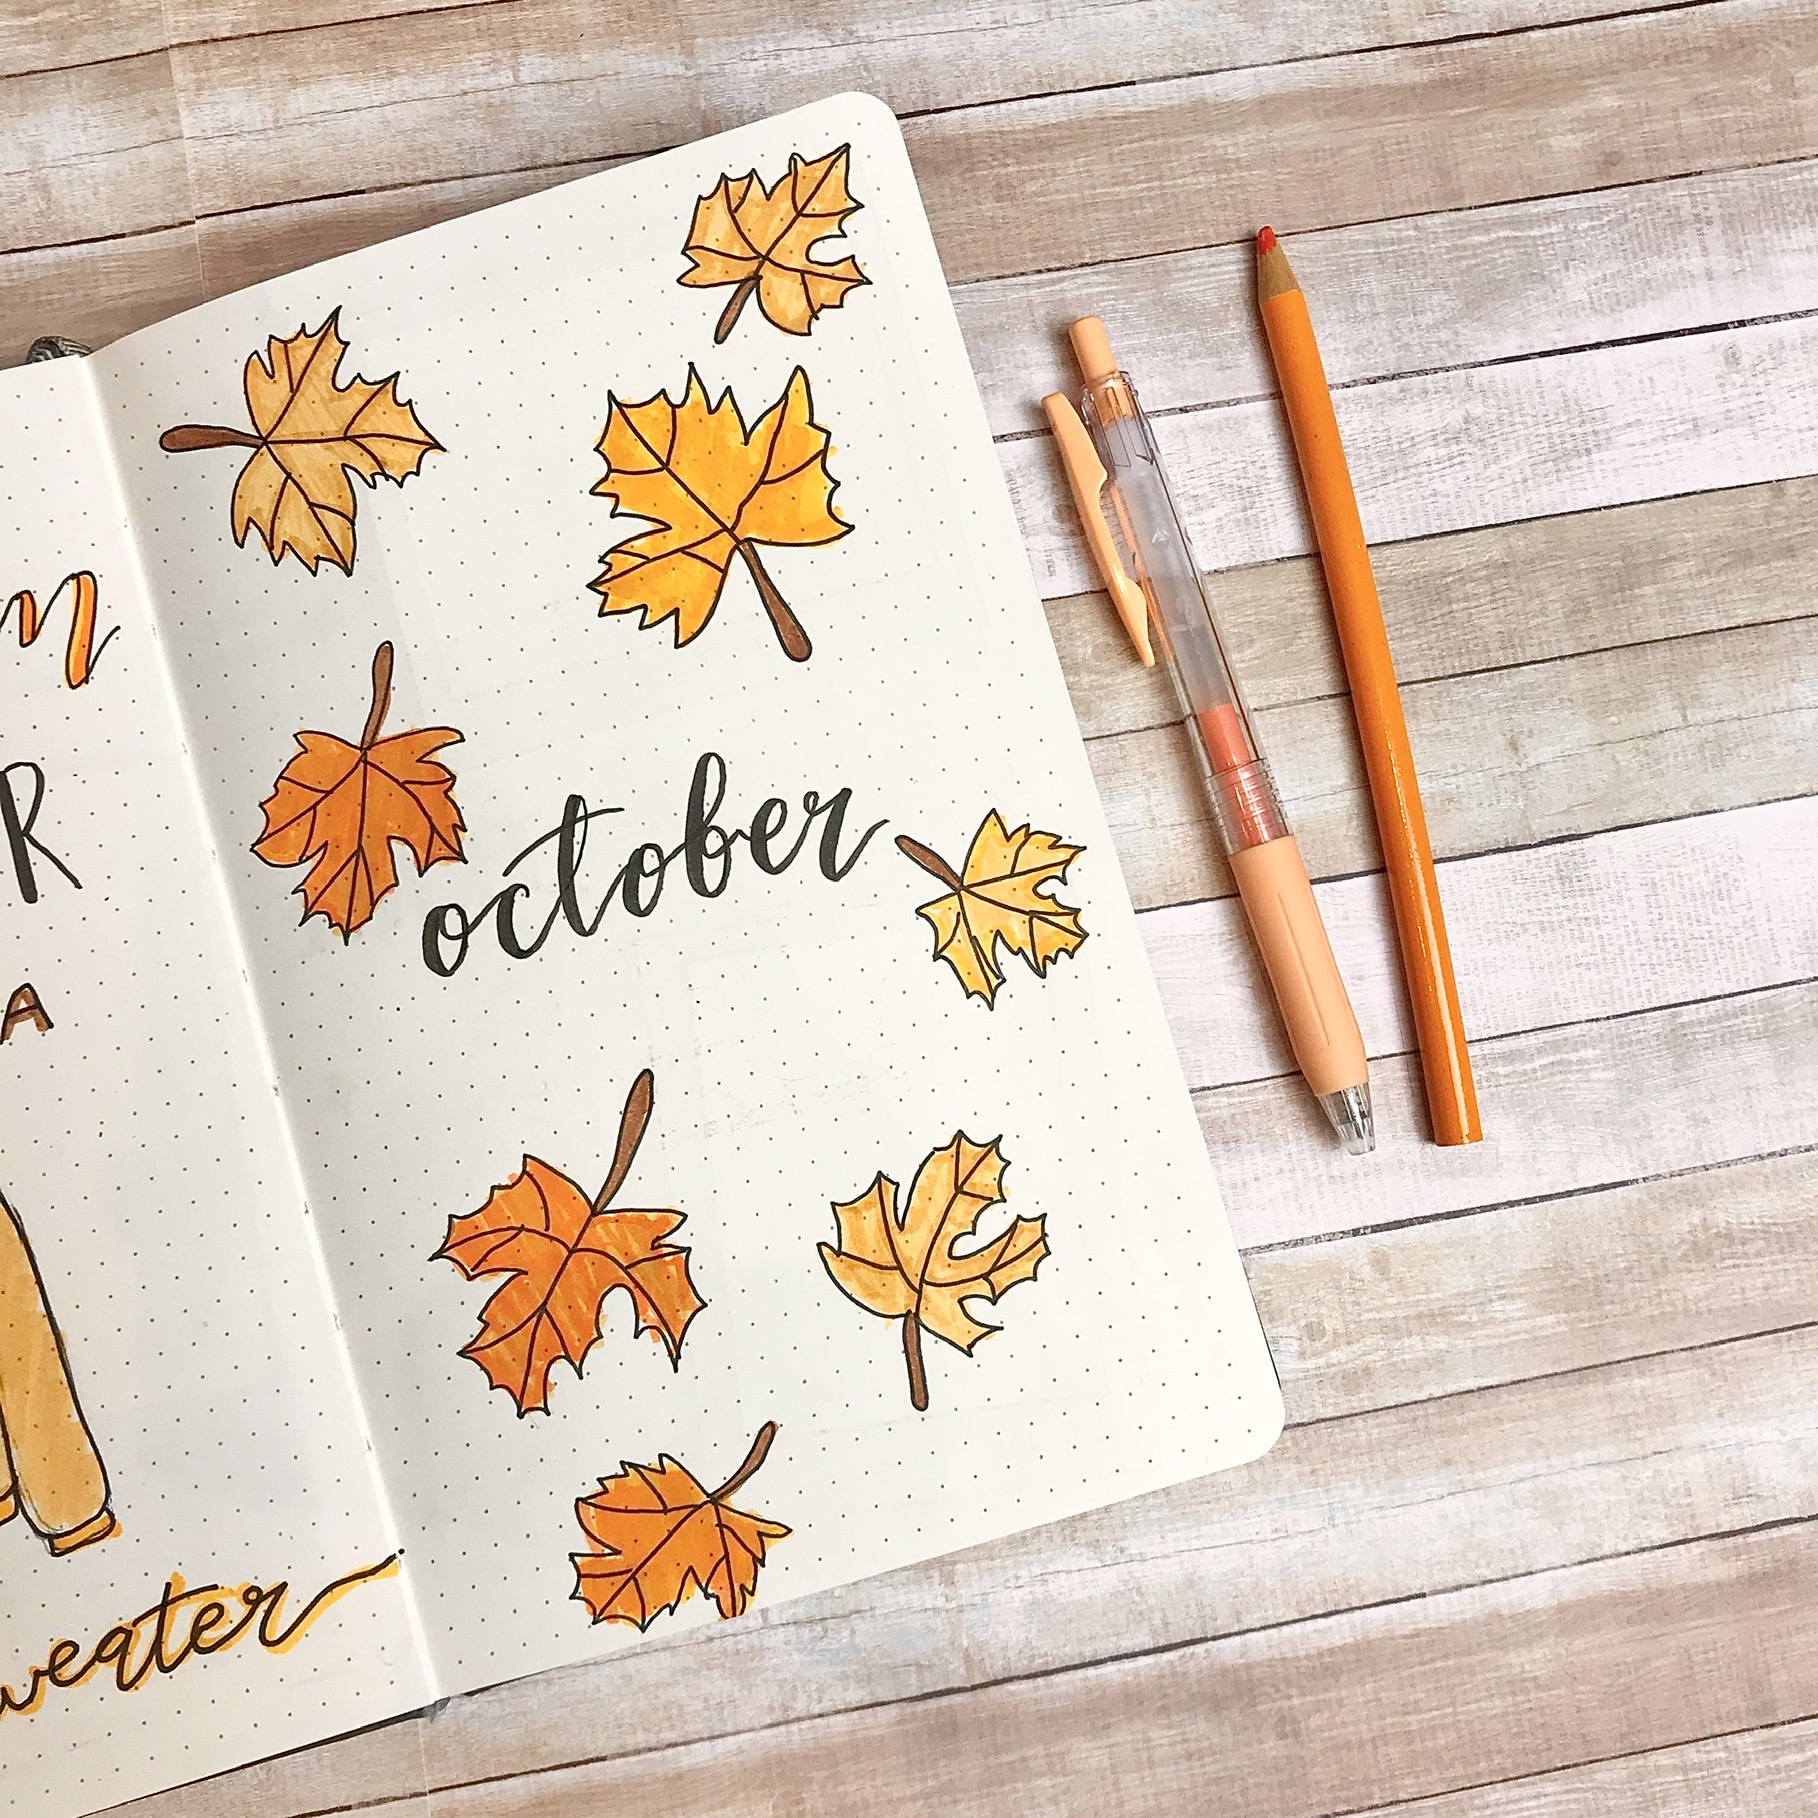 n
R
A
weater
october